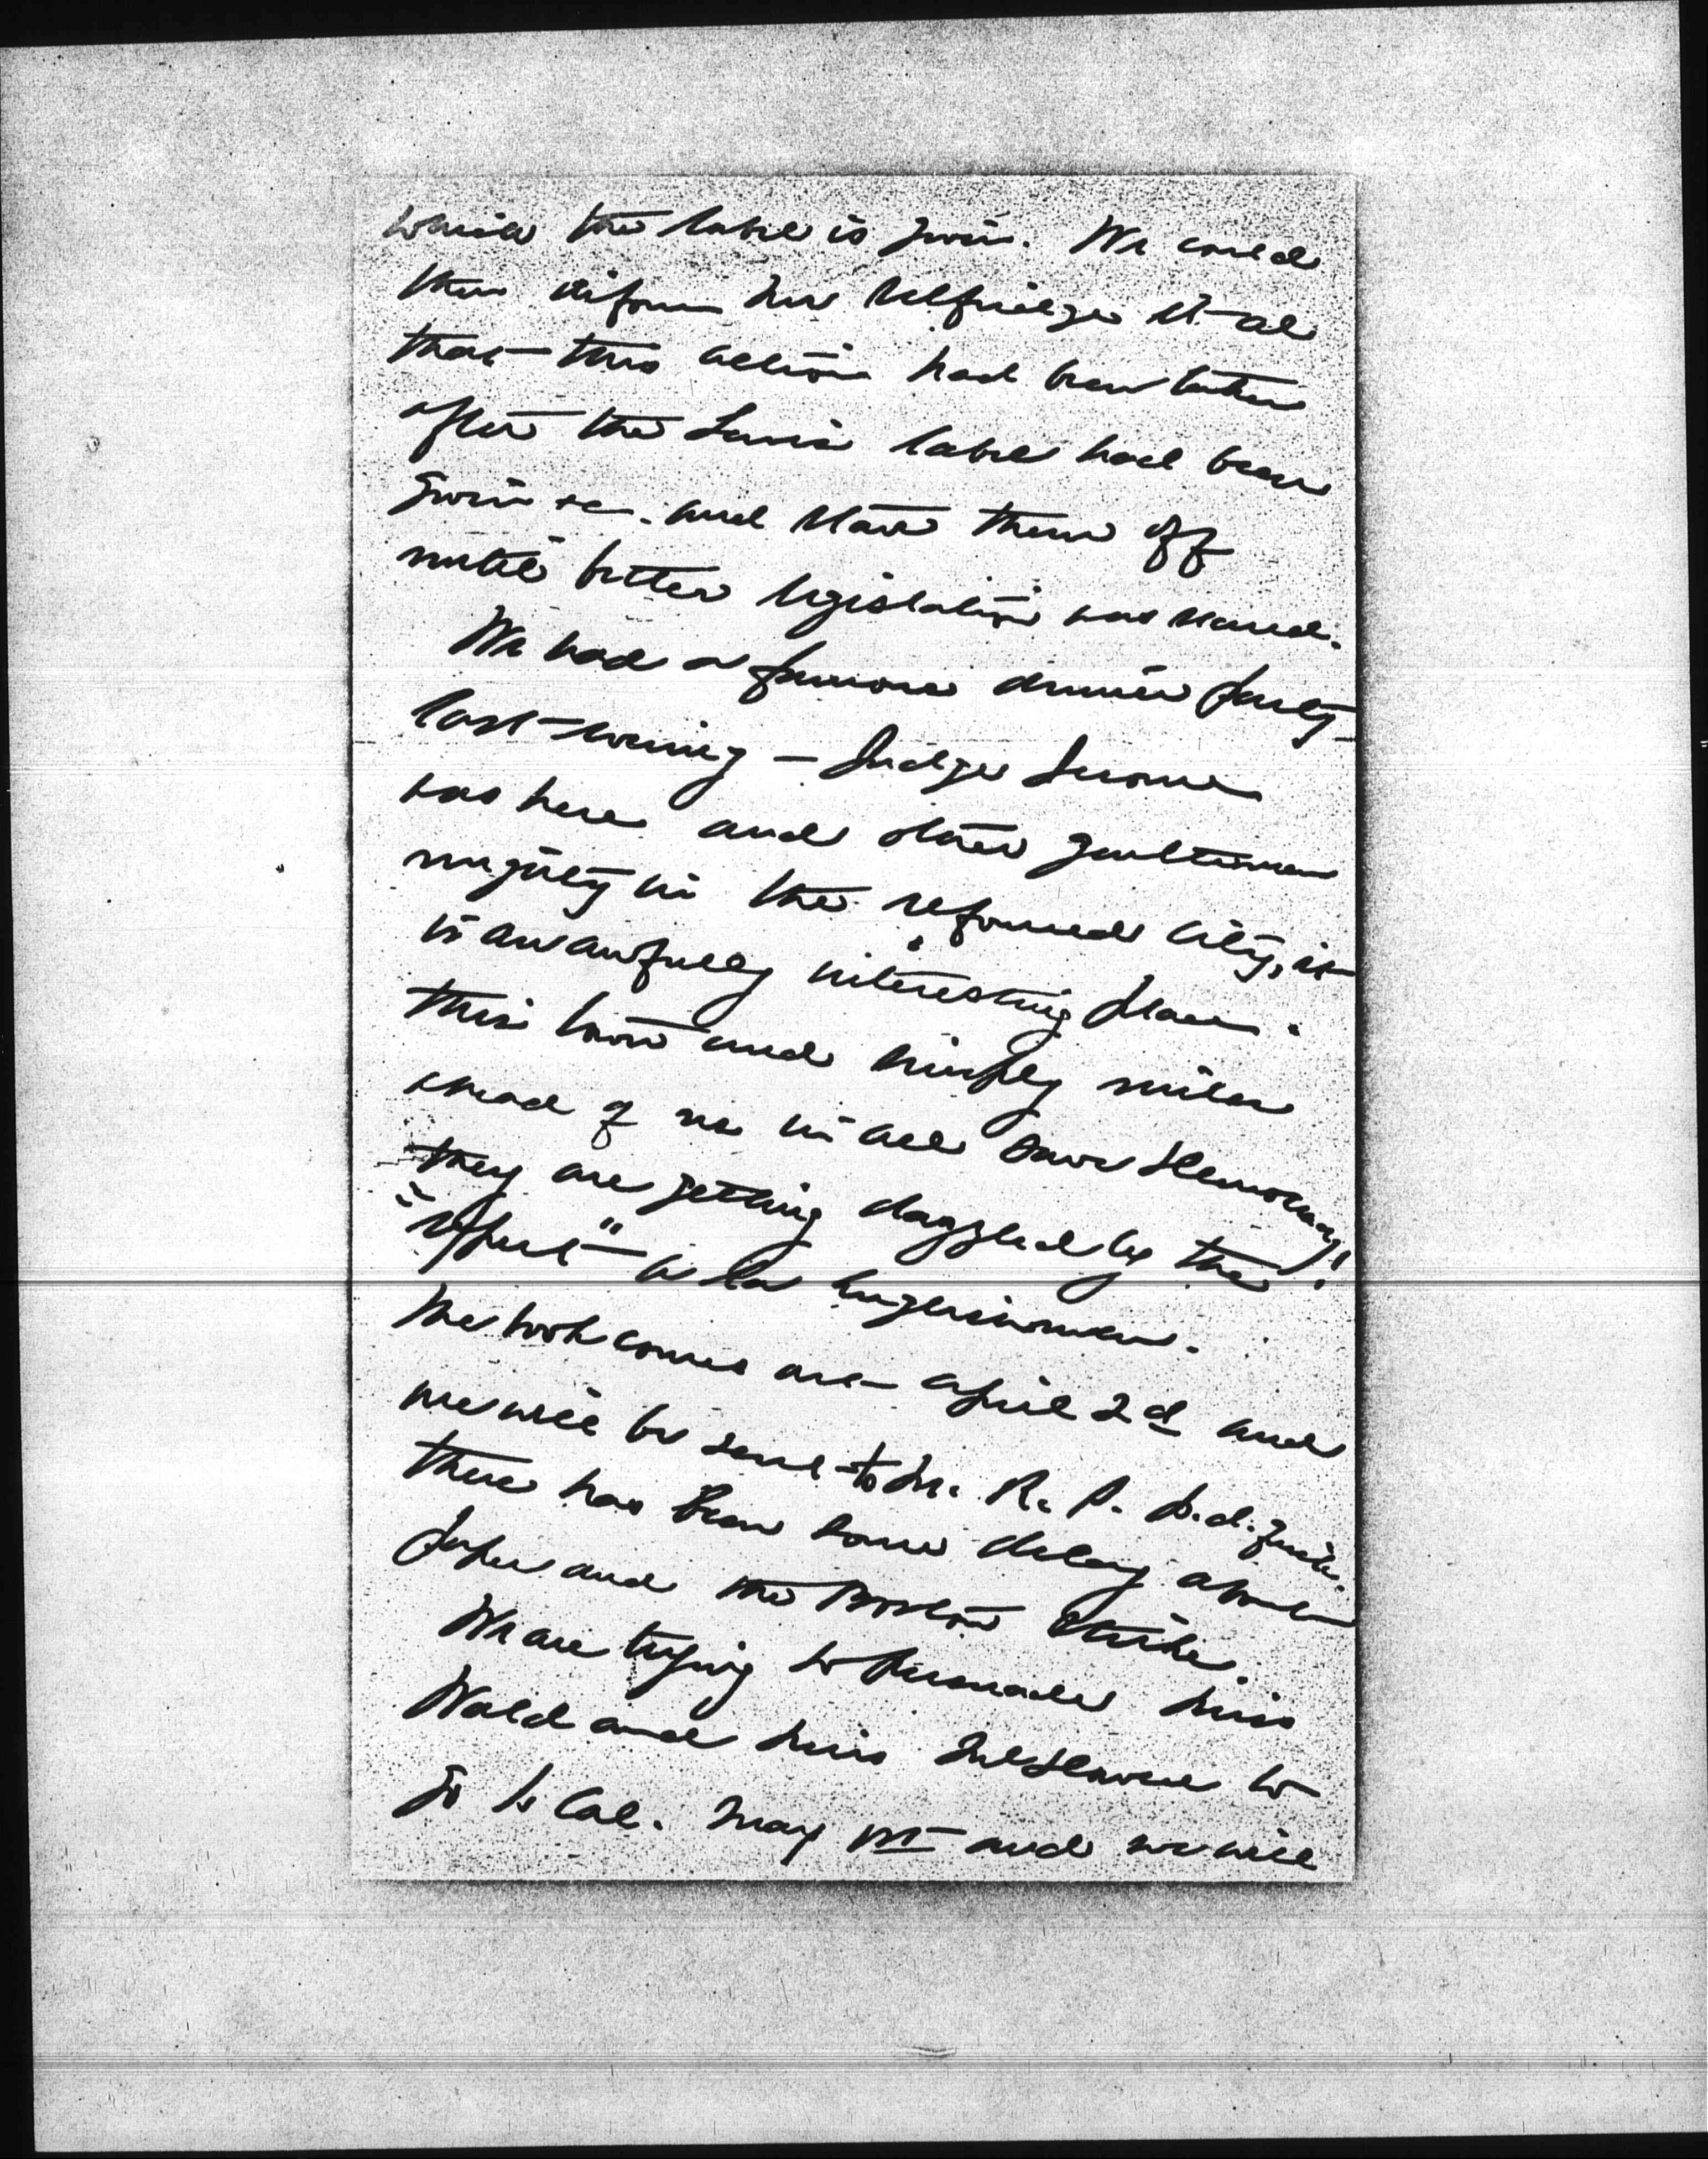 which the label is given. We could
then inform Mr Selfridge et al
that this action had been taken
after the Louis label had been
given &c. and stave them off
until better legislation was secured.
We had a famous dinner party
last evening — Judge Jerome
was here and other gentlemen
mighty in the reformed city, it
is an awfully interesting place.
this town and simply miles
ahead of us in all save Democracy!
they are getting dazzled by the
"effect" a la
The book comes out April 2d and
one will be sent to Mr. R. P.
there has been some delay about
paper and the Boston strike.
We are trying to persuade Miss
Wald and Miss McDowell to
go to Cal. May 1st and we will